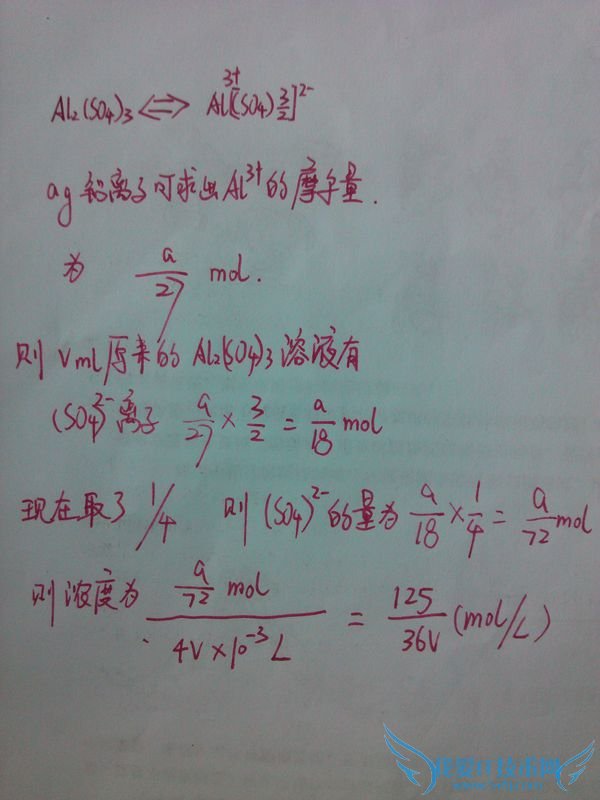 Al₂(SO₄)₃ ⇔ Al³⁺[(SO₄)3/2]²⁻
ag 铝离子可求出Al³⁺的摩尔量.
为 a/27 mol.
则 Vml原来的 Al₂(SO₄)₃溶液有
(SO₄)²⁻离子 a/27 × 3/2 = a/18 mol
现在取了 1/4 则 (SO₄)²⁻的量为 a/18 × 1/4 = a/72 mol
则浓度为 (a/72 mol)/(4V×10⁻³L) = 125/36V (mol/L)